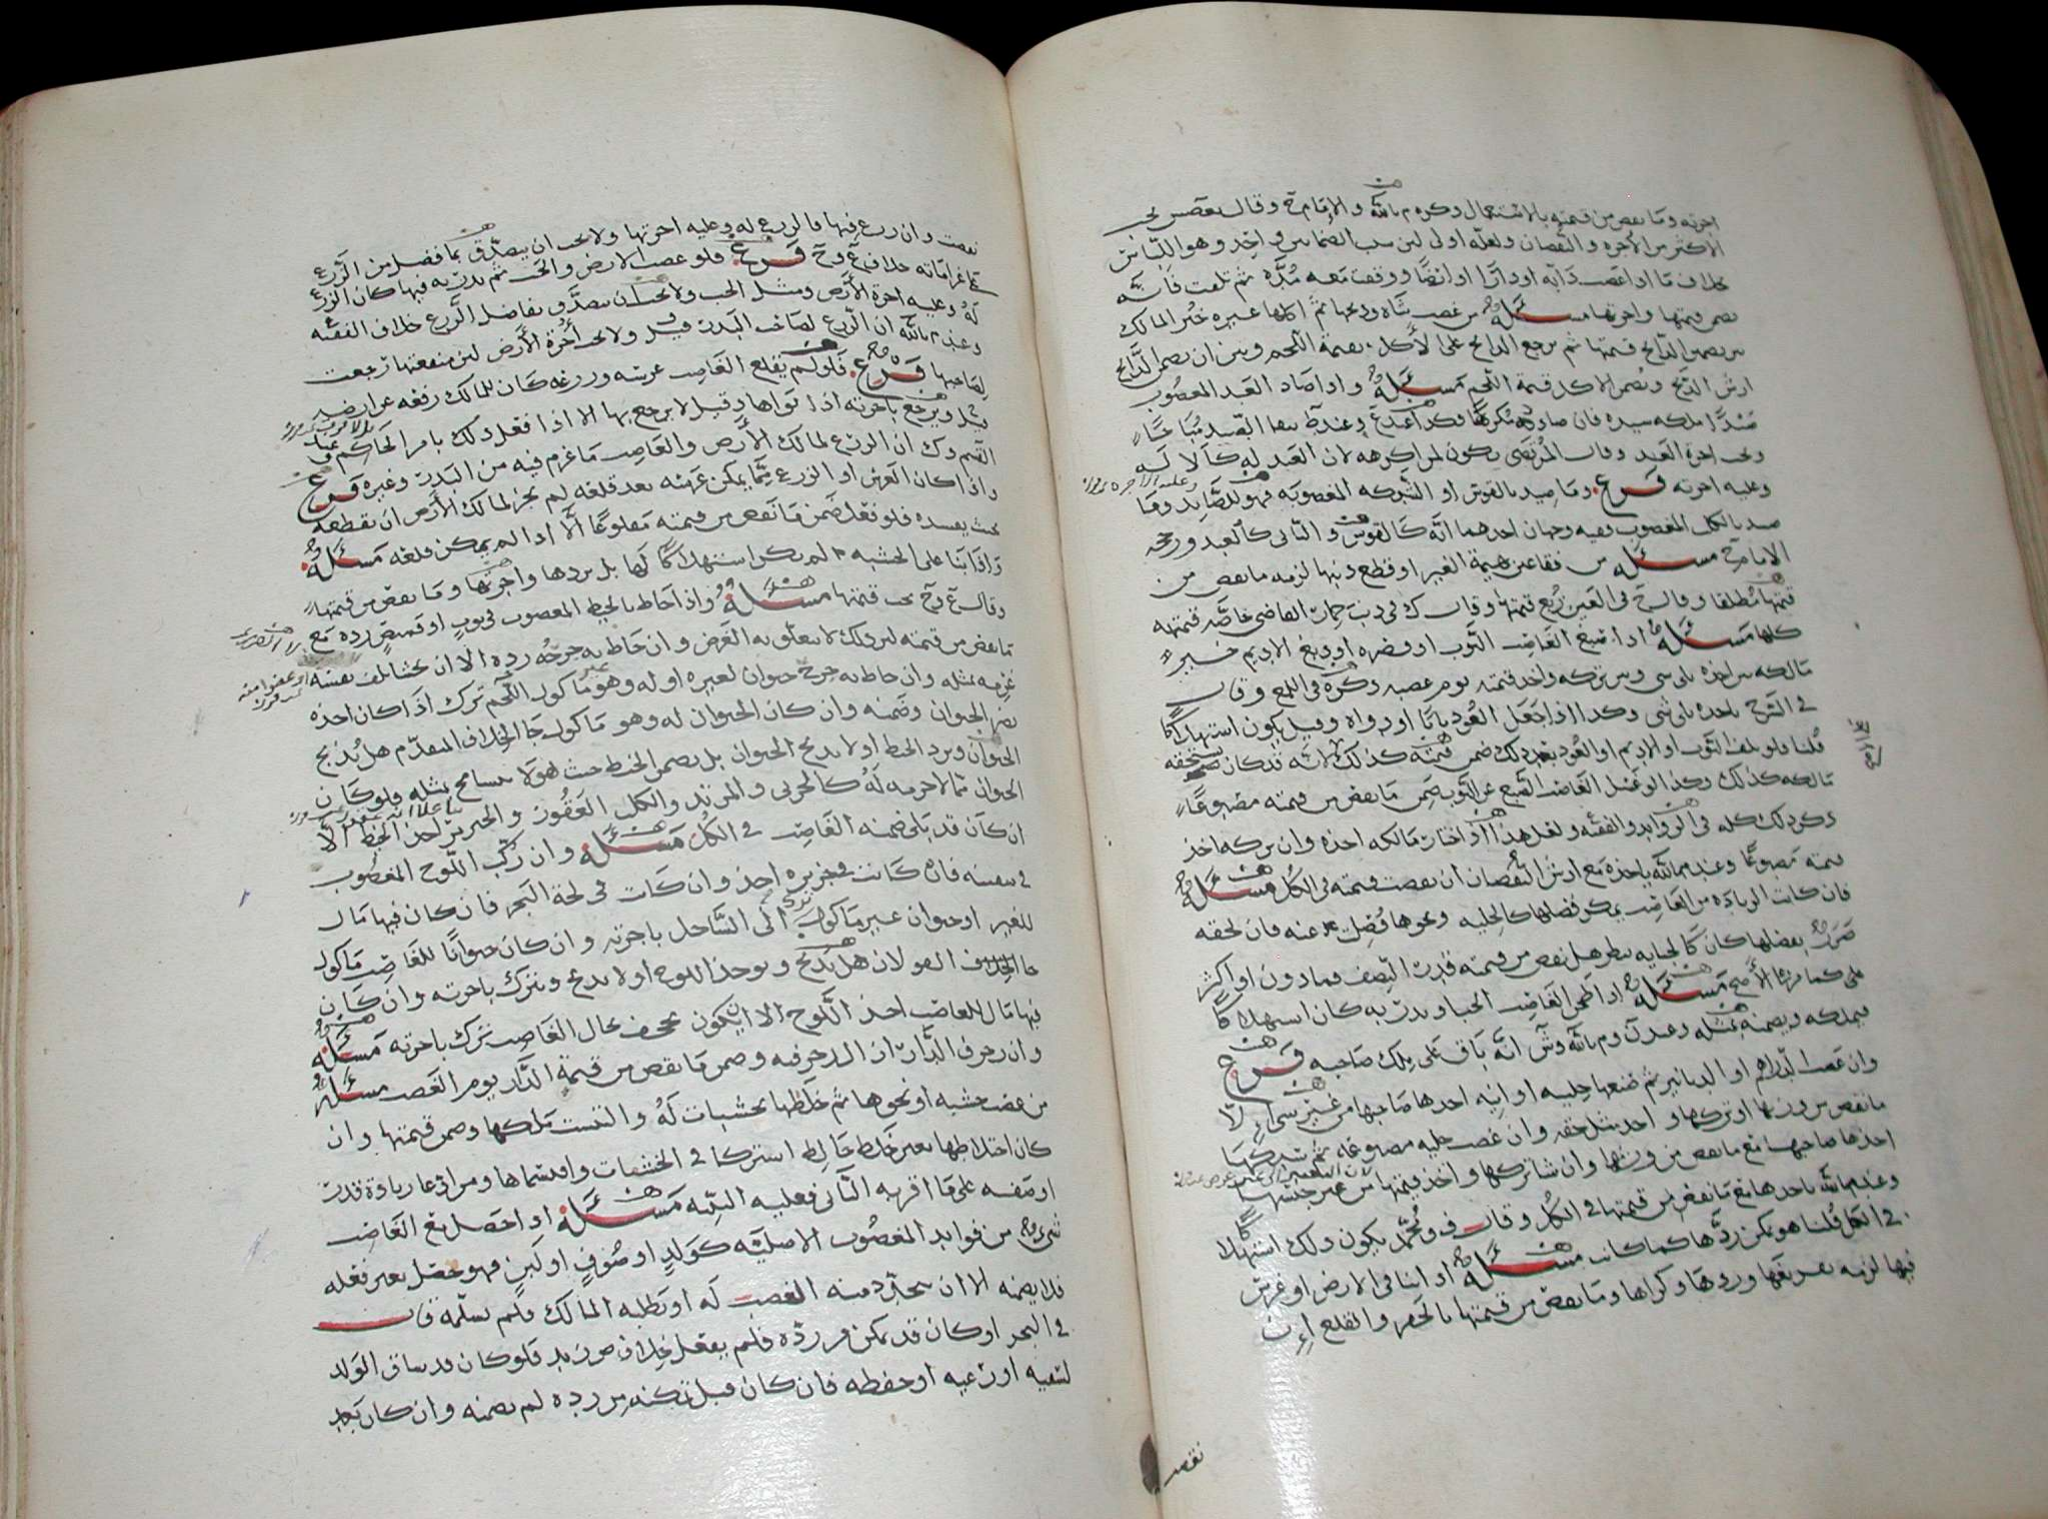 اجرته وما نقص من قيمته بالاستعمال ذكره م بالله والامام ح وقال بعضهم يجب
الاكثر من الاجرة والنقصان ولعله اولى لان سبب الضمان واحد وهو اللباس
بخلاف ما اذا غصب دابة او دارا او ارضا ووقفت معه مدة ثم تلفت فانه
يضمن قيمتها واجرتها مسئلة من غصب شاة وذبحها ثم اكلها غيره خير المالك
بين يضمن الذابح قيمتها ثم يرجع الذابح على الاكل بقيمة اللحم وبين ان يضمن الذابح
ارش الذبح ويضمن الاكل قيمة اللحم مسئلة واذا صاد العبد المغصوب
صيدا ملكه سيده فان صاده مكرها فكذا عند ع وعند ط يبقى الصيد مباحا
وتجب اجرة العبد وقال المرتضى يكون لمن اكرهه لان العبد له كالالة
وعليه اجرته فرع وما صيد بالقوس او الشبكة المغصوبة فهو للصايد وما
صيد بالكلب المغصوب ففيه وجهان احدهما انه كالقوس والثاني كالعبد ورجحه
الامام ح مسئلة من فقأ عين بهيمة الغير او قطع ذنبها لزمه ما نقص من
قيمتها مطلقا وقال ح في العين ربع قيمتها وقال ك في ذنب حمار القاضي خاصة قيمته
كلها مسئلة اذا صبغ الغاصب الثوب او قصره او دبغ الاديم خير
مالكه بين اخذه بلا شي وبين تركه واخذ قيمته يوم غصبه ذكره في اللمع وقال
في الشرح ياخذه بلا شي وكذا اذا جعل العود بابا او دواة وقيل يكون استهلاكا
قلنا فلو تلف الثوب او الاديم او العود بعد ذلك ضمن قيمته كذلك لانه قد كان يستحقه
مالكه كذلك وكذا لو غسل الغاصب الصبغ عن الثوب ضمن ما نقص من قيمته مصبوغا
ذكر ذلك كله في الزوايد والفقيه ولعل هذا اذا اختار مالكه اخذه وان تركه اخذ
قيمته مصبوغا وعند م بالله ياخذه مع ارش النقصان ان نقصت قيمته في الكل مسئلة
فان كانت الزيادة من الغاصب يمكن فصلها كالحلية ونحوها فصلت عنه فان لحقه
ضرر بفصلها كان كالجناية ينظر هل نقص من قيمته قدر النصف فما دون او اكثر
على كما مر مسئلة اذا طحن الغاصب الحب او بذر به كان استهلاكا
فيملكه ويضمنه بمثله وعند ن وم بالله وش انه باق على ملك صاحبه فرع
وان غصب الدراهم او الدنانير ثم صنعها حلية او انية اخذها صاحبها من غير شي
ما نقص من وزنها او تركها واخذ مثل حقه وان غصب حلية مصبوغة ثم
اخذها صاحبها مع ما نقص من وزنها وان شا تركها واخذ قيمتها من غير جنسها
وعند م بالله ياخذها مع ما نقص من قيمتها في الكل وقال ف ومحمد يكون ذلك استهلاكا
في الكل قلنا هو يمكن ردها كما كانت مسئلة اذا بنا في الارض او غرس
فيها لزمه تفريغها وردها وكراها وما نقص من قيمتها بالحفر والقلع ان
نقصت
نقصت وان زرع فيها فالزرع له وعليه اجرتها ولا يجب ان يتصدق بما فضل من الزرع
على غراماته خلاف ع وح فرع فلو غصب الارض والحب ثم بذر به فيها كان الزرع
له وعليه اجرة الارض ومثل الحب ولا يجب ان يتصدق بفاضل الزرع خلاف الفقيه
وعند م بالله ان الزرع لصاحب البذر قيل ولا تجب اجرة الارض لان منفعتها رجعت
لصاحبها فرع فلو لم يقلع الغاصب غرسه وزرعه كان للمالك رفعه عن ارضه
قيل ويرجع باجرته اذا نواها وقيل لا يرجع بها الا اذا فعل ذلك بامر الحاكم وعند
القسم وك ان الزرع لمالك الارض والغاصب ما غرم فيه من البذر وغيره فرع
واذا كان الغرس او الزرع مما يمكن غرسه بعد قلعه لم يجز لمالك الارض ان يقطعه
بحيث يفسده فلو فعل ضمن ما نقص من قيمته مقلوعا الا اذا لم يمكن قلعه مسئلة
واذا بنا على الخشبة لم يكن استهلاكا لها بل يردها واجرتها وما نقص من قيمتها
وقال ع وح تجب قيمتها مسئلة واذا خاط بالخيط المغصوب في ثوب او قميص رده مع
ما نقص من قيمته لان ذلك لا يتعلق به الغرض وان خاط به جرحه رده الا ان يخشا تلف نفسه
غرمه بمثله وان خاط به جرح حيوان لغيره او له وهو غير ماكول اللحم ترك اذا كان اخذه
يضر الحيوان وضمنه وان كان الحيوان له وهو ماكول جا الخلاف المتقدم هل يذبح
الحيوان ويرد الخيط او لا يذبح الحيوان بل يضمن الخيط حيث هو لا يتسامح بمثله فلو كان
الحيوان مما لا حرمة له كالحربي والمرتد والكلب العقور والخنزير اخذ الخيط الا
ان كان قد بلي ضمنه الغاصب في الكل مسئلة وان ركب اللوح المغصوب
في سفينة فان كانت في جزيرة اخذ وان كانت في لجة البحر فان كان فيها مال
للغير او حيوان غير ماكول ترك الى الساحل باجرته وان كان حيوانا للغاصب ماكول
جا الخلاف القولان هل يذبح ويوخذ اللوح او لا يذبح ويترك باجرته وان كان
فيها مال للغاصب اخذ اللوح الا ان يكون مجحف بحال الغاصب ترك باجرته مسئلة
وان زخرف الدار ازال الزخرفه وضمن ما نقص من قيمة الدار يوم الغصب مسئلة
من غصب خشبة او نحوها ثم خلطها بخشبات له والتبست ملكها وضمن قيمتها وان
كان اختلاطها بغير خلط خالط اشتركا في الخشبات واقتسماها ومن ادعا زيادة قدر
او صفه على ما اقر به الثاني فعليه البينه مسئلة اذا حصل مع الغاصب
شي من فوايد المغصوب الاصلية كولد او صوف او لبن فهو حصل بغير فعله
فلا يضمنه الا ان يتجدد منه الغصب له او يطلبه المالك فلم يسلمه قال
في البحر او كان قد تمكن من رده فلم يفعل خلاف ص زيد فلو كان قد ساق الولد
لسقيه او رعيه او حفظه فان كان قبل تمكنه من رده لم يضمنه وان كان بعد